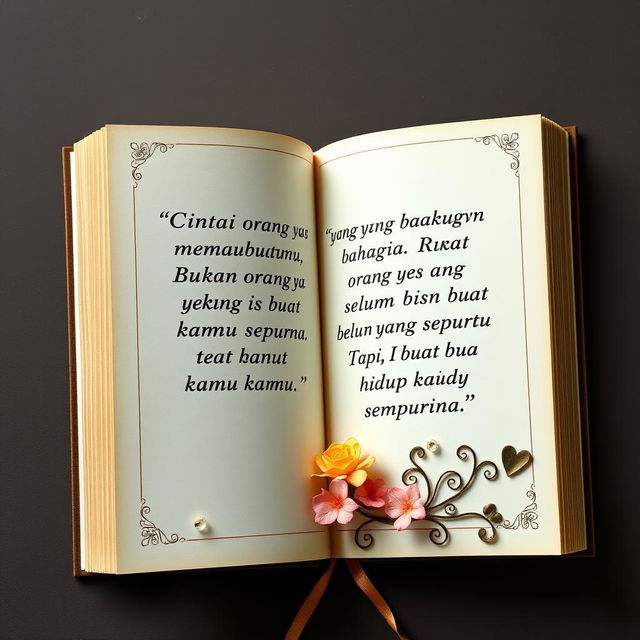 “Cintai orang yas
memaubutumu,
Bukan orang ya
yeking is buat
kamu sepurna,
teat hanut
kamu kamu.”
“yang ying baakugvn
bahagia. Rikat
orang yes ang
selum bisn buat
belun yang sepurtu
Tapi, I buat bua
hidup kaidy
sempurina.”